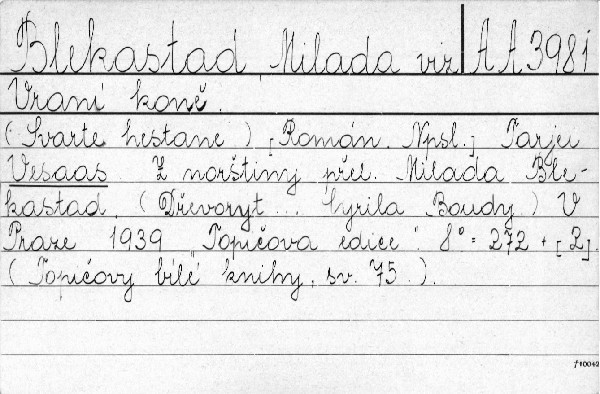 Blekastad Milada viz AA 3981
Vraní koně.
(Svarte hestane) [Román. Npsl.] Tarjei
Vesaas. Z norštiny přel. Milada Ble-
kastad. (Dřevoryt... Cyrila Boudy.) V
Praze 1939 "Topičova edice". 8° = 272 + [2].
(Topičovy bílé knihy, sv. 75.).
f10042